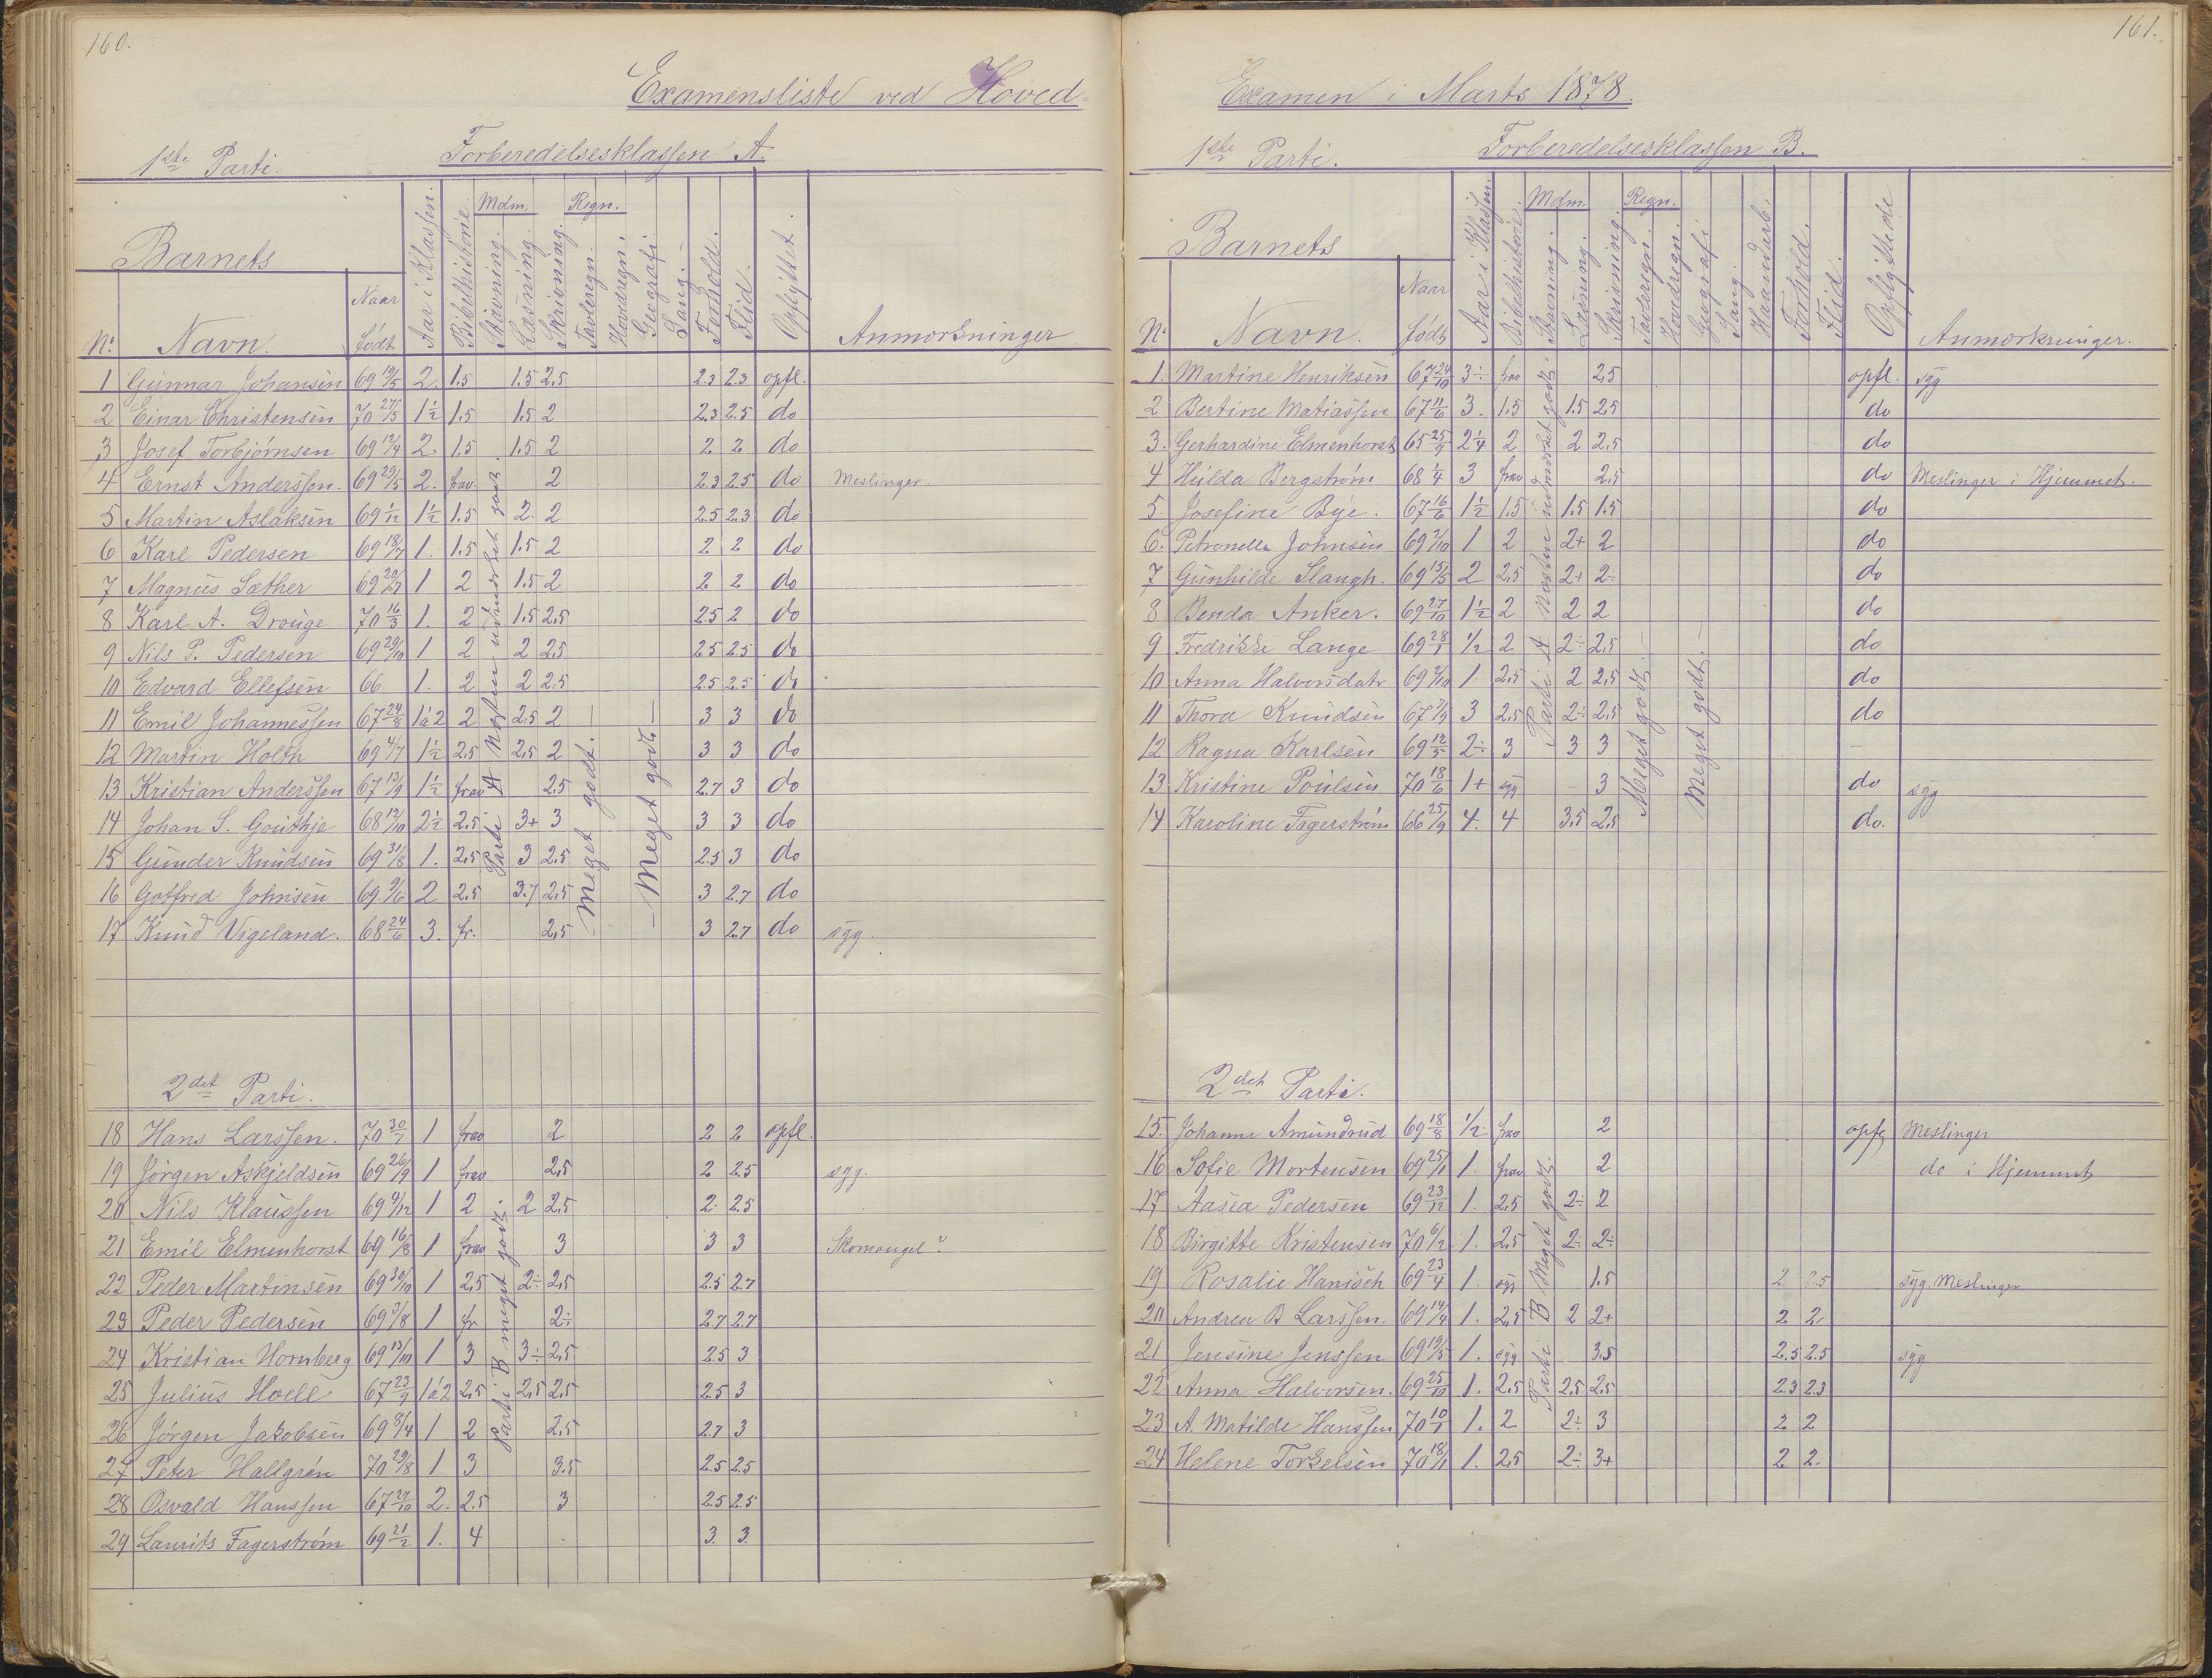 160.
Examensliste ved Hoved-
1ste Parti. Forberedelsesklassen A.
Barnets Aar i Klassen. Bibelhistorie. Mdm. Stavning. Læsning. Skrivning. Regn. Tavleregn. Hovedregn. Geografi. Sang. Forhold. Flid. Opflyttet. Anmorkninger
No. Navn. Naar født
1 Gunnar Johansen 69 19/5 2. 1.5 1.5 2,5 2.3 2.3 opfl.
2 Einar Christensen 70 27/5 1½ 1.5 1.5 2 2.3 2.5 do
3 Josef Torbjørnsen 69 12/4 2. 1.5 1.5 2 2 2 do
4 Ernst Anderssen. 69 29/5 2. frav. 2 2.3 2.5 do Meslinger.
5 Martin Aslaksen 69 1/12 1½ 1.5 2. 2 2.5 2.3 do
6 Karl Pedersen 69 18/7 1. 1.5 1.5 2 2 2 do
7 Magnus Sæther 69 1 2 1.5 2 2 2 do
8 Karl A. Drouge 70 16/3 1. 2 1.5 2,5 2.5 2 do
9 Nils P. Pedersen 69 29/10 1 2 2 2.5 2.5 2.5 do
10 Edvard Ellefsen 66 1. 2 2 2.5 2.5 2.5 do
11 Emil Johannessen 67 24/8 1à2 2 2.5 2 3 3 do
12 Martin Holth 69 4/7 1½ 2.5 2.5 2 3 3 do
13 Kristian Anderssen 67 13/9 1½ frav 2.5 2.7 3 do
14 Johan S. Gouthje 68 12/10 2½ 2.5 3+ 3 3 3 do
15 Gunder Knudsen 69 31/8 1. 2,5 3 2.5 2.5 3 do
16 Gotfred Johnsen 69 9/6 2 2.5 3.7 2,5 3 2.7 do
17 Knud Vigeland. 68 24/6 3. fr. 2,5 3 2.7 do syg.
Parti A næsten udmærket godt
- Meget godt. -
- Meget godt -
2det Parti.
18 Hans Larssen. 70 30/7 1 frav 2 2 2 opfl.
19 Jørgen Askjeldsen 69 26/9 1 frav 2,5 2 2.5 syg.
20 Nils Klaussen 69 4/12 1 2 2 2.5 2. 2.5
21 Emil Elmenhorst 69 16/8 1 frav 3 3 3 Skomangel
22 Peder Martinsen 69 30/10 1 2,5 2÷ 2,5 2.5 2.7
23 Peder Pedersen 69 3/8 1 fr 2÷ 2.7 2.7
24 Kristian Hornberg 69 13/10 1 3 3÷ 2,5 2.5 3
25 Julius Hoell 67 23/9 1à2 2,5 2,5 2,5 2.5 3
26 Jørgen Jakobsen 69 8/4 1 2 2.5 2.7 3
27 Peter Hallgren 70 29/8 1 3 3.5 2.5 2.5
28 Osvald Hanssen 67 27/10 2. 2.5 3 2.5 2.5
29 Laurits Fagerstrøm 69 21/2 1. 4 3. 3.
Parti B meget godt.
161.
Examen i Marts 1878.
1ste Parti. Forberedelsesklassen B.
Barnets Aar i Klassen. Bibelhistorie. Mdm. Stavning. Læsning. Skrivning. Regn. Tavleregn. Hovedregn. Geografi Sang. Haandarb. Forhold. Flid. Opflyttede Anmorkninger.
No Navn. Naar født
1. Martine Henriksen 67 24/10 3÷ frav 2,5 opfl. syg
2 Bertine Matiassen 67 11/6 3. 1.5 1.5 2.5 do
3. Gerhardine Elmenhorst 65 25/9 2¼ 2 2 2,5 do
4 Hulda Bergstrøm 68 1/4 3 frav 2.5 do Meslinger i Hjemmet.
5. Josefine Bye. 67 16/6 1½ 1.5 1.5 1.5 do
6. Petronelle Johnsen 69 2/10 1 2 2+ 2 do
7 Gunhilde Slangh. 69 15/5 2 2,5 2+ 2÷ do
8 Benda Anker. 69 27/10 1½ 2 2 2 do
9 Fredrikke Lange 69 28/1 ½ 2 2÷ 2,5 do
10 Anna Halvorsdatr 69 2/10 1 2,5 2 2,5 do
11 Thora Knudsen 67 7/9 3 2,5 2÷ 2,5 do
12 Ragna Karlsen 69 12/5 2÷ 3 3 3 -
13 Kristine Poulsen 70 18/6 1+ syg - 3 do syg
14 Karoline Fagerstrøm 66 25/9 4. 4 3.5 2,5 do.
Parti A næsten udmærket godt.
Meget godt. -
Meget godt. -
2det Parti.
15. Johanne Amundrud 69 18/8 ½ frav 2 opfl Meslinger
16 Sofie Mortensen 69 25/1 1. frav 2 do i Hjemmet
17 Aasea Pedersen 69 23/12 1. 2,5 2÷ 2
18 Birgitte Kristensen 70 6/2 1. 2,5 2÷ 2÷
19 Rosalie Hanisch 69 23/4 1. syg 1.5 2 2.5 syg. Meslinger
20 Andrea B Larssen. 69 14/4 1. 2,5 2 2+ 2 2
21 Jensine Jenssen 69 19/5 1. syg 3.5 2.5 2.5 syg
22 Anna Halvorsen. 69 25/10 1. 2,5 2.5 2.5 2.3 2.3
23 A. Matilde Hanssen 70 10/1 1. 2 2÷ 3 2 2
24 Helene Torkelsen 70 18/1 1. 2,5 2÷ 3+ 2 2.
Parti B Meget godt.